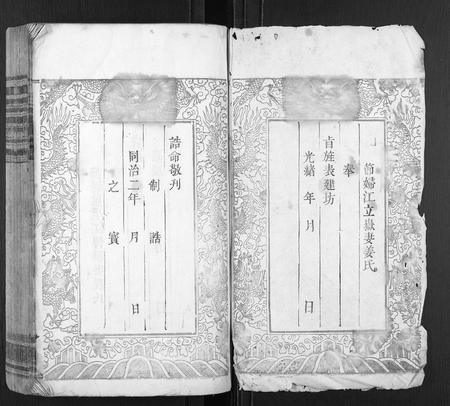 節婦江立嶽妻姜氏
奉
旨旌表建坊
光緒 年 月 日
誥命敬刊
制誥
同治二年 月 日
之寳